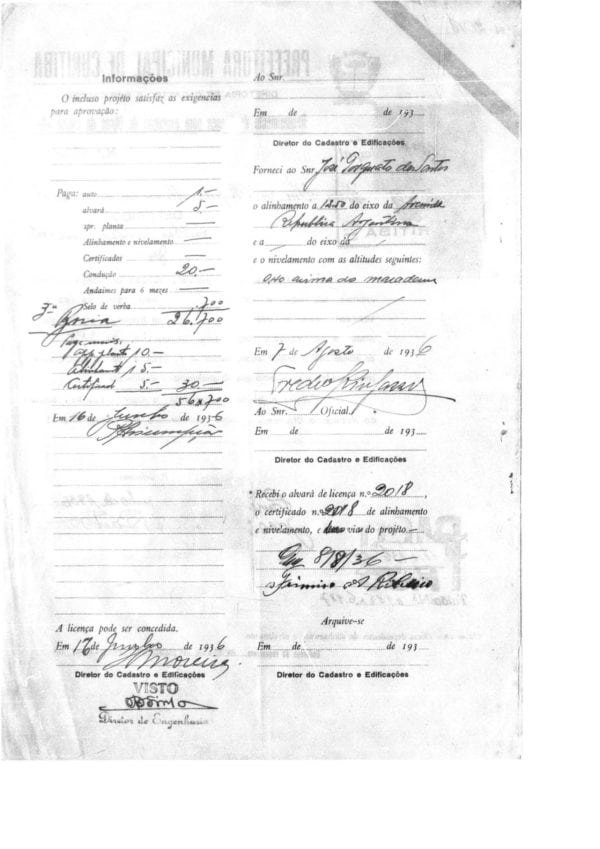 Informações
O incluso projéto satisfaz as exigencias
para aprovação:
Paga: auto 1.—
alvará 5.—
spr. planta —
Alinhamento e nivelamento —
Certificados —
Condução 20.—
Andaimes para 6 mezes —
Selo de verba .700
26.700
Pague mais:
10.—
5.—
Certificad 5.— 30—
56.700
Em 16 de Junho de 1936
A licença pode ser concedida.
Em 17 de Junho de 1936
Moreira
Diretor do Cadastro e Edificações
VISTO
Diretor de Engenharia
Ao Snr.
Em de de 193
Diretor do Cadastro e Edificações
Forneci ao Snr. José Torquato dos Santos
o alinhamento a 12.50 do eixo da Avenida
Republica Argentina
e a do eixo da
e o nivelamento com as altitudes seguintes:
acima do macadam
Em 7 de Agosto de 1936
Ao Snr. Oficial.
Em de de 193
Diretor do Cadastro e Edificações
Recebi o alvará de licença n.º 2018,
o certificado n.º 2018 de alinhamento
e nivelamento, e vias do projéto.—
8/8/36 —
Ribeiro
Arquive-se
Em de de 193
Diretor do Cadastro e Edificações